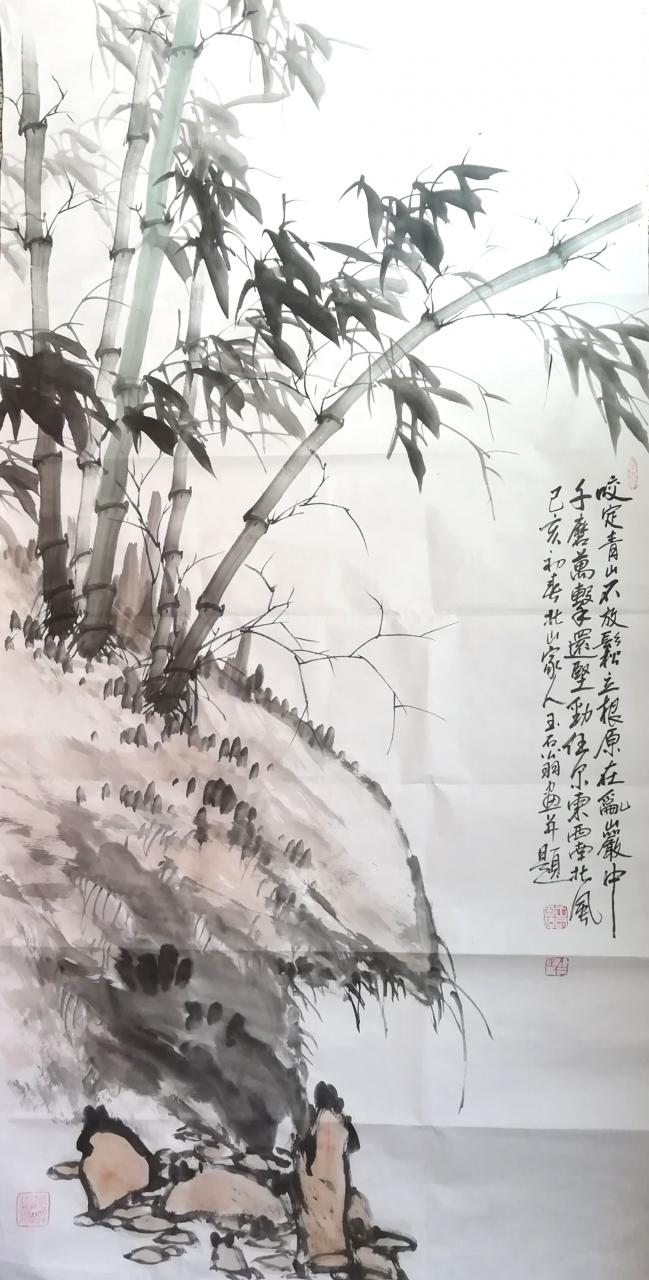 咬定青山不放鬆立根原在亂巖中
千磨萬擊還堅勁任尔東西南北風
己亥初春北山家人玉石翁画并題